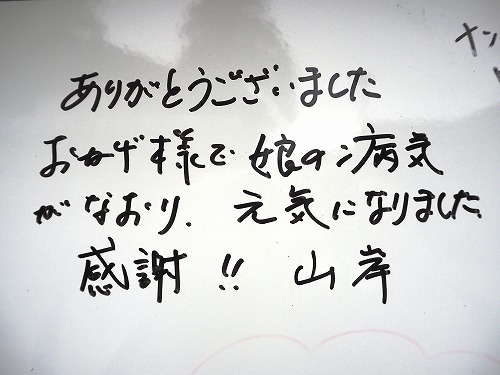 ありがとうございました
おかげ様で娘の病気
がなおり、元気になりました
感謝!! 山岸